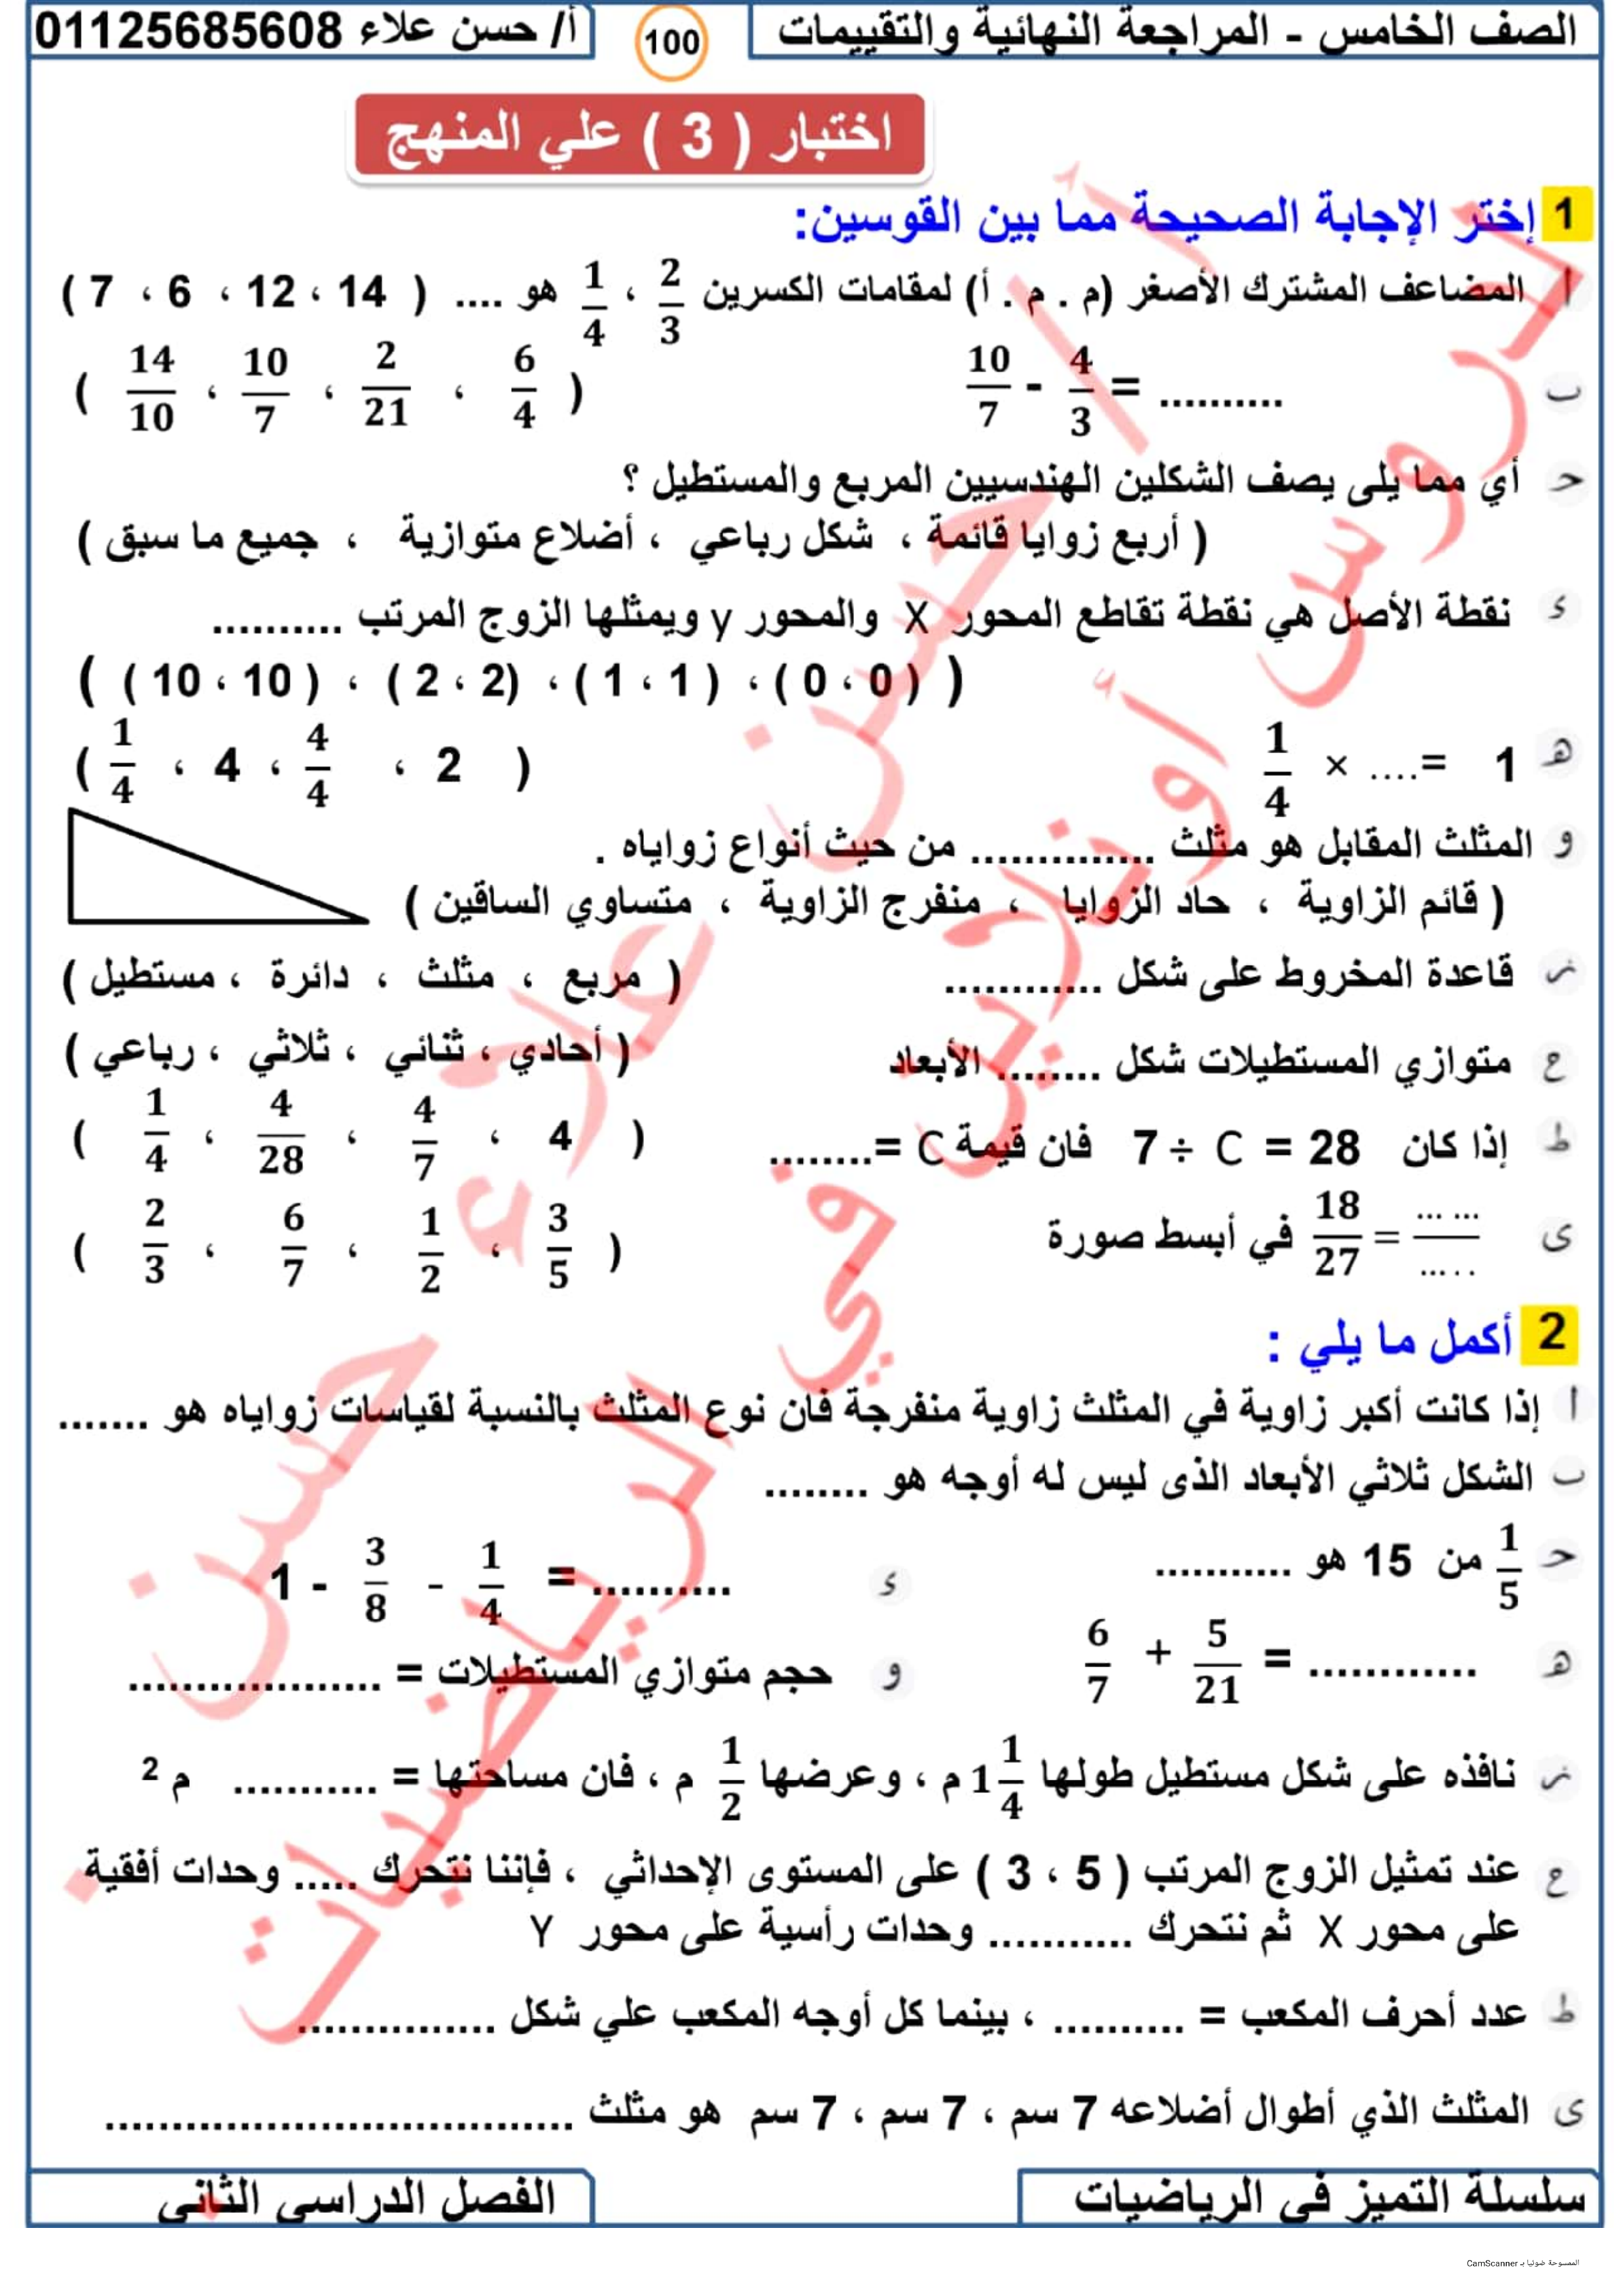 الصف الخامس - المراجعة النهائية والتقييمات
100
أ/ حسن علاء 01125685608
اختبار ( 3 ) علي المنهج
1 إختر الإجابة الصحيحة مما بين القوسين:
أ المضاعف المشترك الأصغر (م . م . أ) لمقامات الكسرين 2/3 ، 1/4 هو .... ( 14 ، 12 ، 6 ، 7 )
ب 10/7 - 4/3 = .......... ( 6/4 ، 2/21 ، 10/7 ، 14/10 )
حـ أي مما يلى يصف الشكلين الهندسيين المربع والمستطيل ؟
( أربع زوايا قائمة ، شكل رباعي ، أضلاع متوازية ، جميع ما سبق )
ء نقطة الأصل هي نقطة تقاطع المحور X والمحور y ويمثلها الزوج المرتب ..........
( ( 0 ، 0 ) ، ( 1 ، 1 ) ، (2 ، 2 ) ، ( 10 ، 10 ) )
هـ 1/4 × ....= 1 ( 2 ، 4/4 ، 4 ، 1/4 )
و المثلث المقابل هو مثلث .............. من حيث أنواع زواياه .
( قائم الزاوية ، حاد الزوايا ، منفرج الزاوية ، متساوي الساقين )
ز قاعدة المخروط على شكل ............ ( مربع ، مثلث ، دائرة ، مستطيل )
ح متوازي المستطيلات شكل ........ الأبعاد ( أحادي ، ثنائي ، ثلاثي ، رباعي )
ط إذا كان 7 ÷ C = 28 فان قيمة C =........ ( 4 ، 4/7 ، 4/28 ، 1/4 )
ى 18/27 = ... .../... . . في أبسط صورة ( 3/5 ، 1/2 ، 6/7 ، 2/3 )
2 أكمل ما يلي :
أ إذا كانت أكبر زاوية في المثلث زاوية منفرجة فان نوع المثلث بالنسبة لقياسات زواياه هو .......
ب الشكل ثلاثي الأبعاد الذى ليس له أوجه هو ........
حـ 1/5 من 15 هو ...........
ء 1 - 3/8 - 1/4 = ..........
هـ 6/7 + 5/21 = ............
و حجم متوازي المستطيلات = ...................
ز نافذه على شكل مستطيل طولها 1 1/4 م ، وعرضها 1/2 م ، فان مساحتها = ........... م 2
ح عند تمثيل الزوج المرتب ( 5 ، 3 ) على المستوى الإحداثي ، فإننا نتحرك ..... وحدات أفقية
على محور X ثم نتحرك ........... وحدات رأسية على محور Y
ط عدد أحرف المكعب = .......... ، بينما كل أوجه المكعب علي شكل ...............
ى المثلث الذي أطوال أضلاعه 7 سم ، 7 سم ، 7 سم هو مثلث ...................................
سلسلة التميز في الرياضيات
الفصل الدراسي الثاني
الممسوحة ضوئيا بـ CamScanner